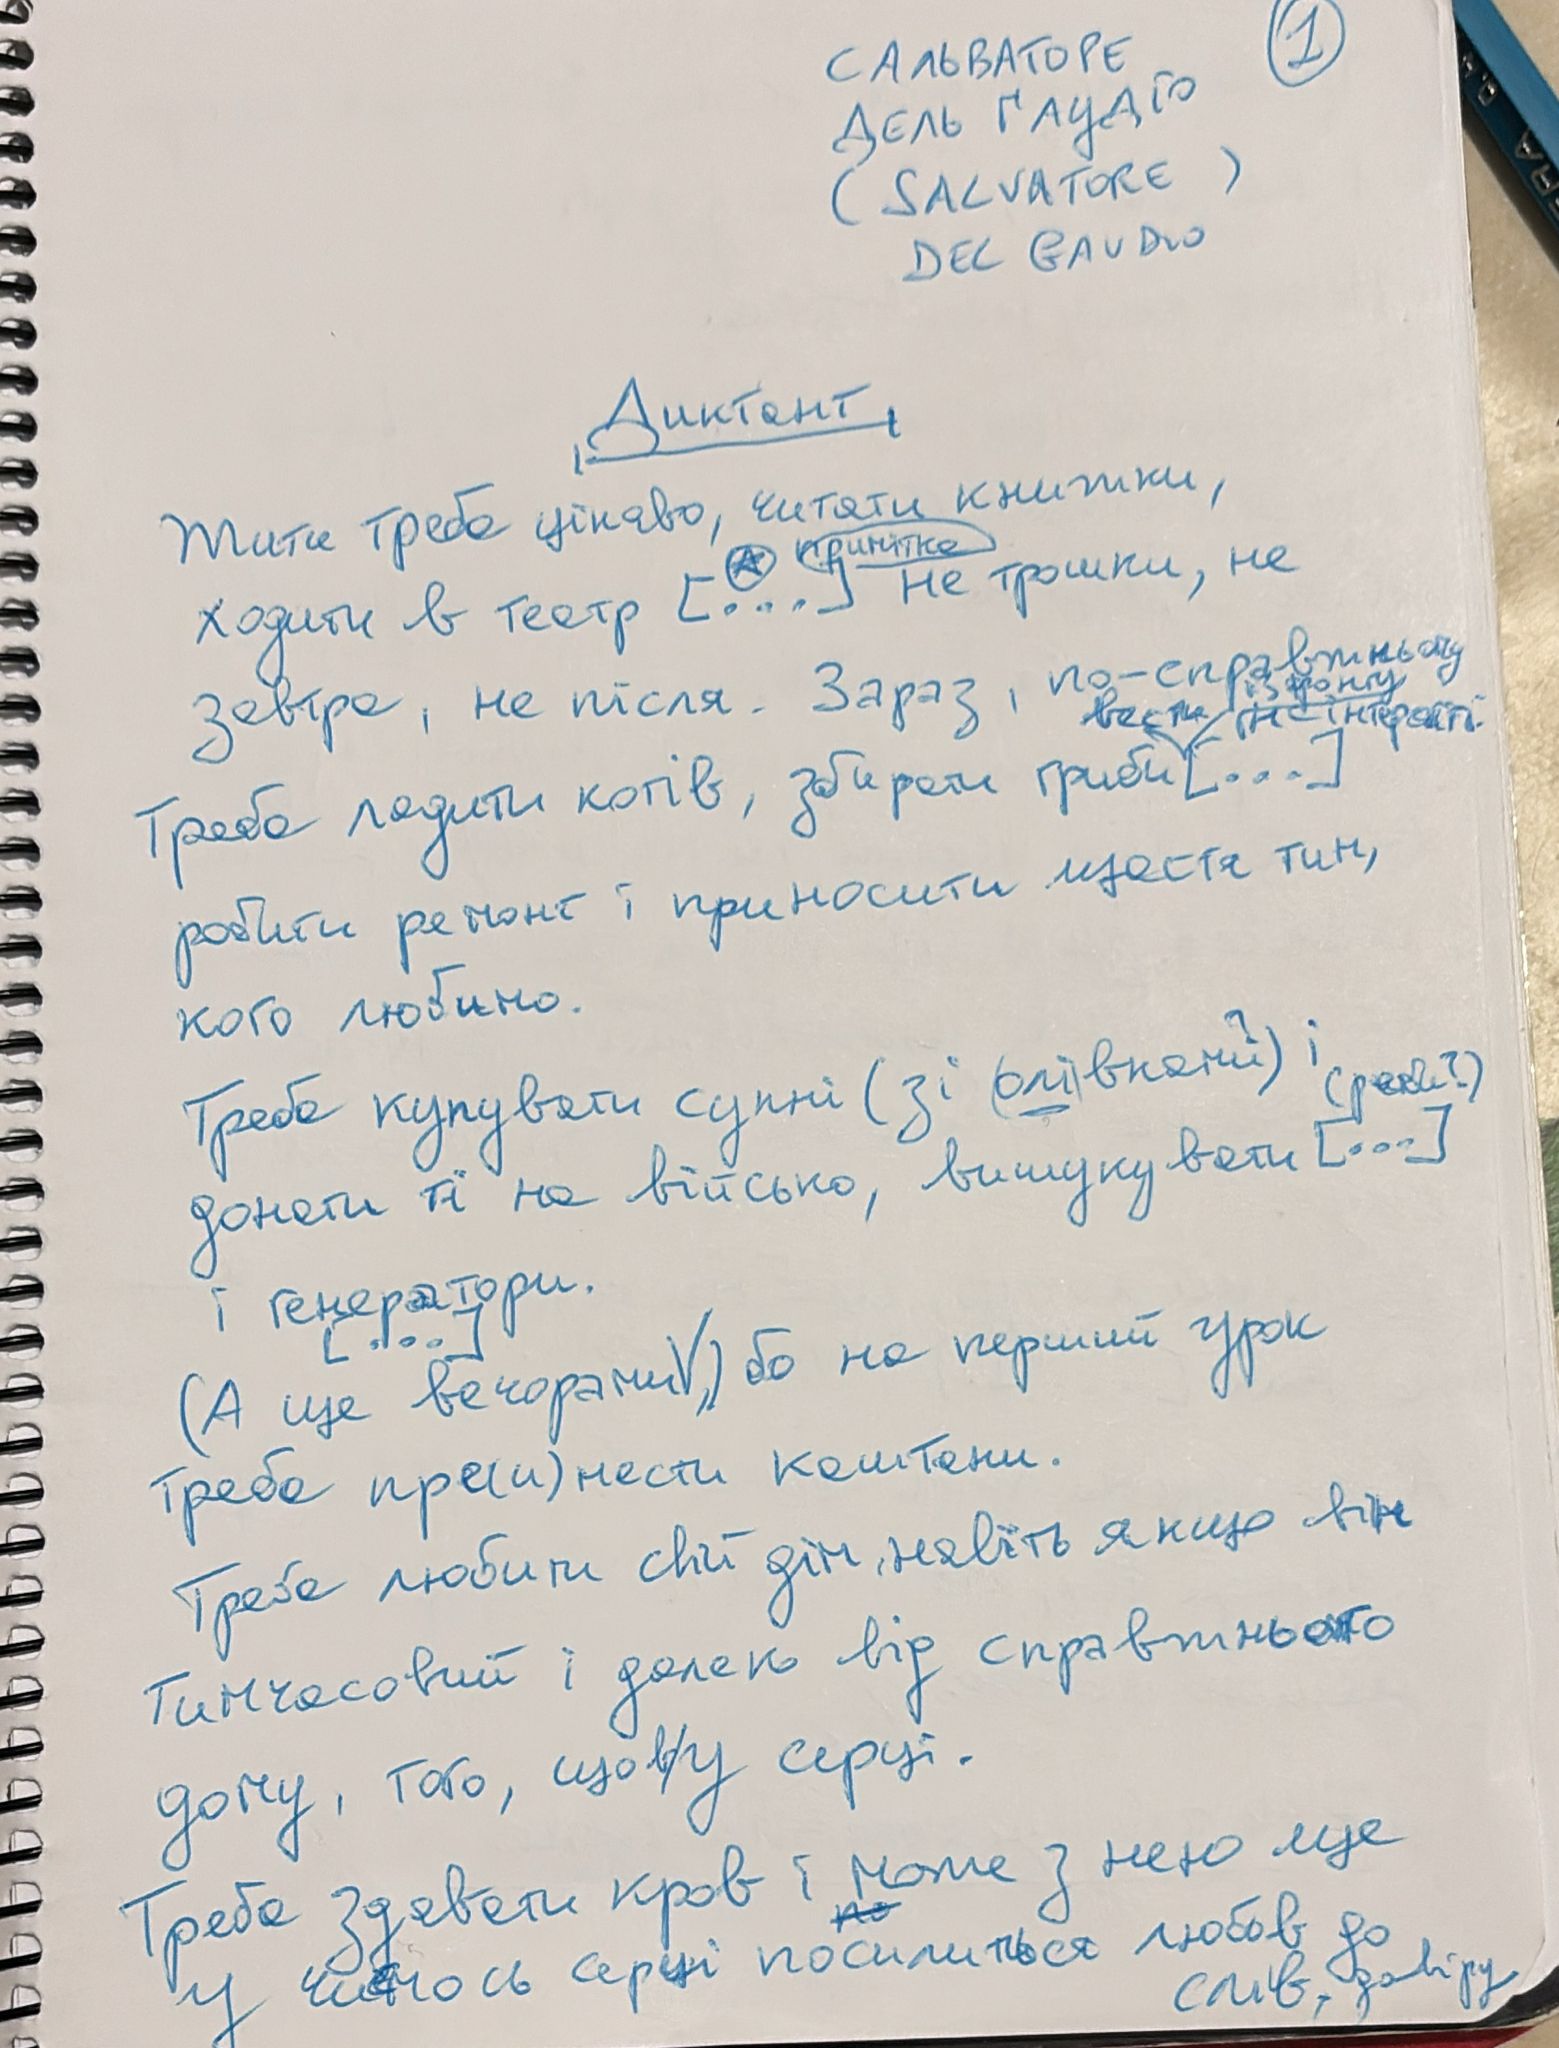 1
САЛЬВАТОРЕ
ДЕЛЬ ҐАУДІО
(SALVATORE)
DEL GAUDIO
Диктант
Жити треба цікаво, читати книжки,
примітка
ходити в театр [....] не трошки, не
завтра, не після. Зараз, по-справжньому
вести із фонту
не інтереті.
Треба ладити котів, збирати гриби [....]
робити ремонт і приносити щастя тим,
кого любимо.
Треба купувати сукні (зі (олі)вками?) і
(рани?)
донати ті на військо, вишукувати [...]
і генератори.
[....]
(А ще вечорами,) бо на перший урок
треба пре(и)нести каштани.
Треба любити свій дім, навіть якщо він
тимчасовий і далеко від справжнього
дому, того, що в/у серці.
Треба здавати кров і може з нею ще
у чиємось серці посилиться любов до
слів, довіру